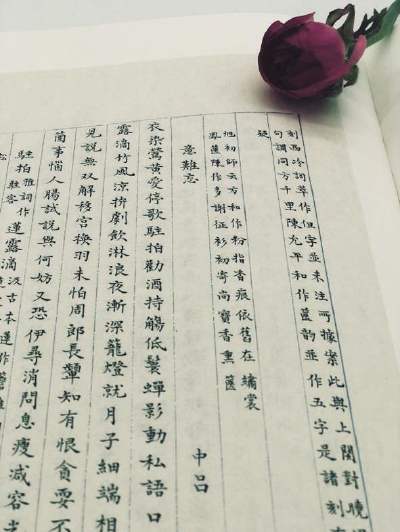 刻西泠詞萃作但字並未注所據案此與上闋對晚
句調同方千里陳允平和作韵並作五字是諸刻
疑
初師云方和作粉指香痕依舊在繡裳
鳳蓮陳作多謝征衫初寄尚寶香熏篋
意難忘 中呂
衣染鶯黃愛停歌駐拍勸酒持觴低鬟蟬影動私語口
露滴竹風涼拚劇飲淋浪夜漸深籠燈就月子細端相
見說無雙解移宮換羽未怕周郎長顰知有恨貪耍不
箇事惱人腸試說與何妨又恐伊尋消問息瘦減容
駐拍雅詞作駐客 露滴汲古本作